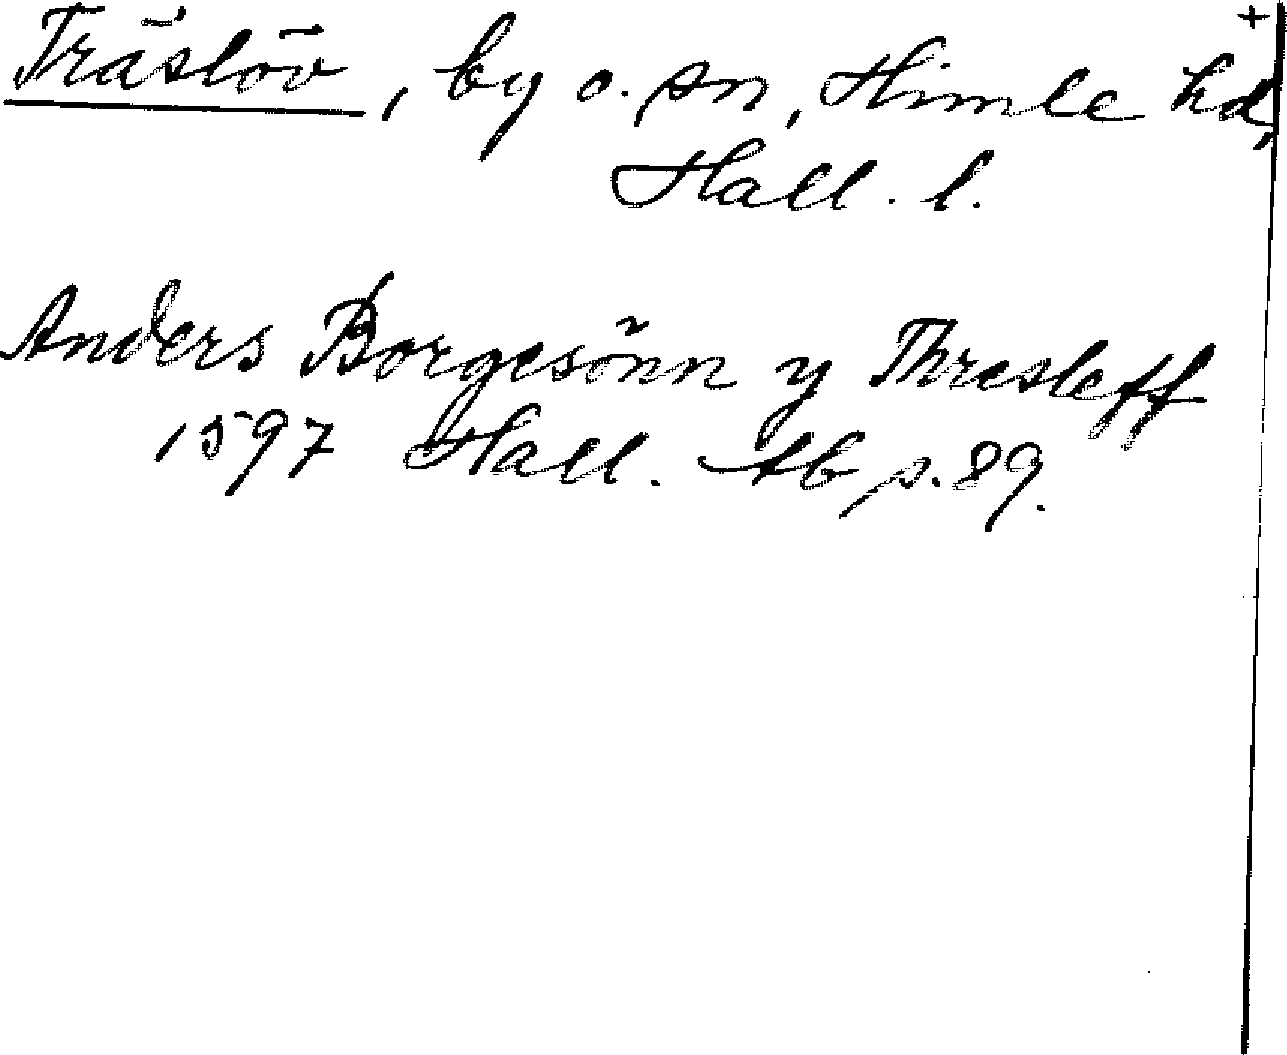 +
Träslöv, by o. sn, Himle hd,
Hall. l.
Anders Borgesönn y Thresleff
1597 Hall. Ab p. 89.